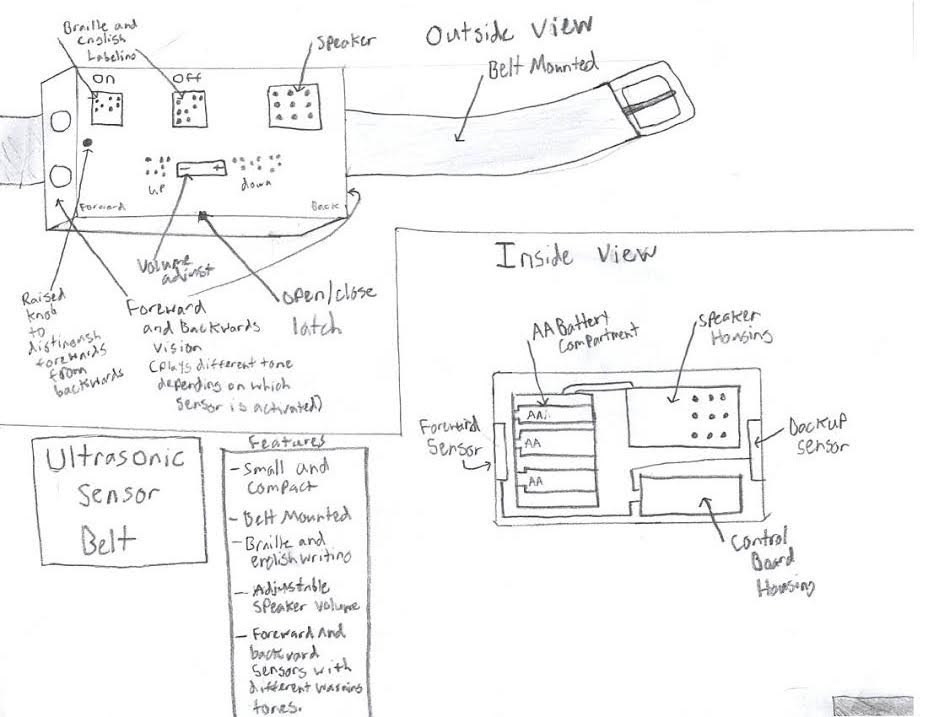 Outside View
Braille and
English
Labeling
Speaker
Belt Mounted
On
Off
- +
up
down
Forward
Back
Volume
adjust
open/close
latch
Raised
knob
to
distinguish
forewards
from
backwards
Foreward
and Backwards
Vision
(plays different tone
depending on which
sensor is activated)
Inside View
AA Battery
Compartment
Speaker
Housing
AA
AA
AA
Foreward
Sensor
Backup
sensor
Control
Board
Housing
Ultrasonic
Sensor
Belt
Features
- Small and
compact
- Belt Mounted
- Braille and
english writing
- Adjustable
speaker volume
- Foreward and
backward
sensors with
different warning
tones.